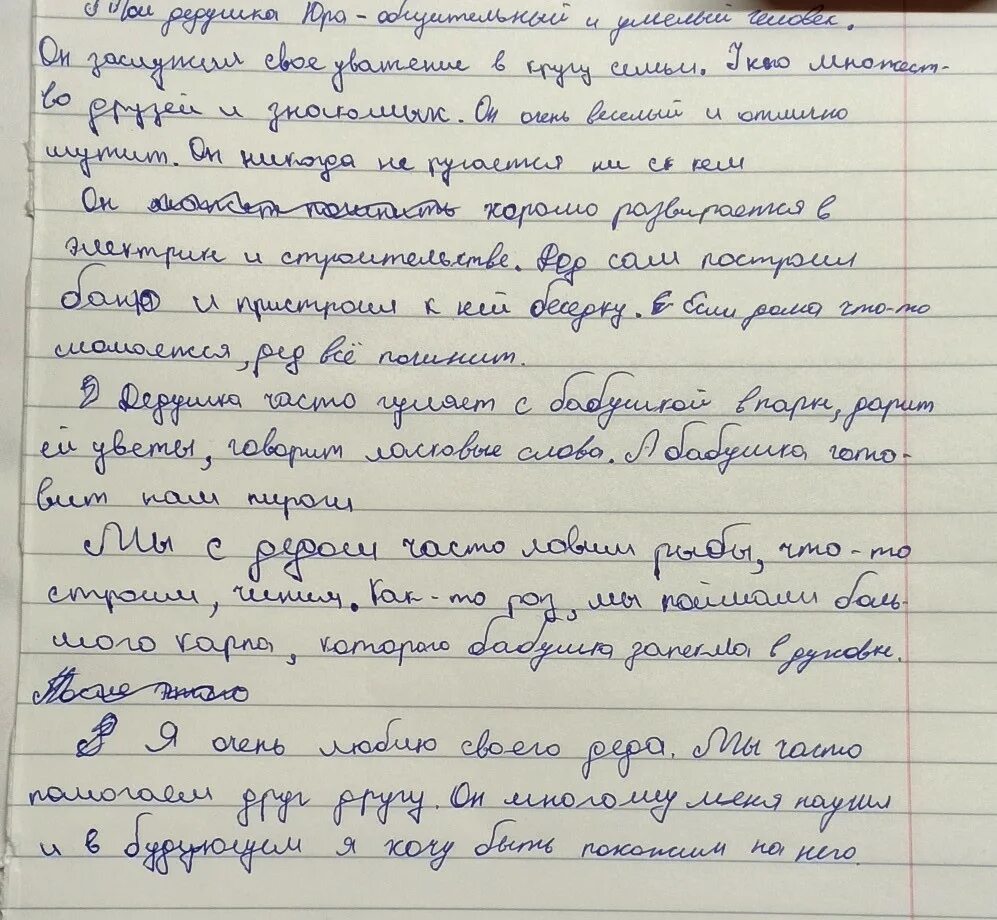 Мой дедушка Юра - общительный и умелый человек.
Он заслужил свое уважение в кругу семьи. У кго множест-
во друзей и знакомых. Он очень веселый и отлично
шутит. Он никогда не ругается ни с кем
Он может починить хорошо развирается в
электрик и строительстве. Дед сам построил
баню и пристроил к ней беседку. Если дома что-то
сломается, дед всё починит.
Дедушка часто гуляет с бабушкой в парк, дарит
ей цветы, говорит ласковые слова. А бабушка гото-
вит нам пироги
Мы с дедом часто ловим рыбы, что-то
строим, чиним. Как-то раз, мы поймали боль-
шого карпа, которого бабушка запекла в духовк.
После этого
Я очень люблю своего деда. Мы часто
помогаем друг другу. Он многому меня научил
и в будующем я хочу быть похожим на него.